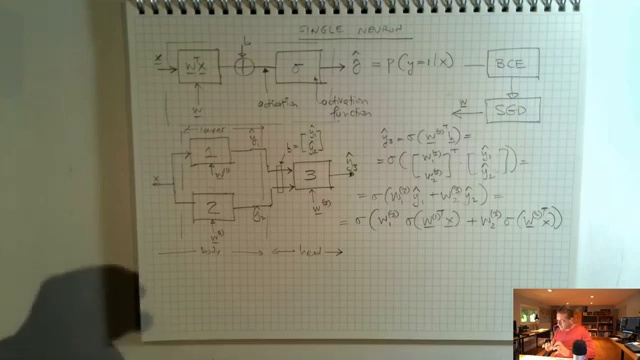 SINGLE NEURON
x wᵀx b σ ŷ = p(y=1|x) BCE
w
activation activation function
w SGD
layer ŷ₁ b = [ŷ₁ ŷ₂]
1 w⁽¹⁾
x 3 ŷ₃
w⁽³⁾
2 ŷ₂
w⁽²⁾
head
ŷ₃ = σ(w⁽³⁾ᵀ b) =
= σ([w₁⁽³⁾ w₂⁽³⁾]ᵀ [ŷ₁ ŷ₂]) =
= σ(w₁⁽³⁾ ŷ₁ + w₂⁽³⁾ ŷ₂) =
= σ(w₁⁽³⁾ σ(w⁽¹⁾ᵀ x) + w₂⁽³⁾ σ(w⁽²⁾ᵀ x))